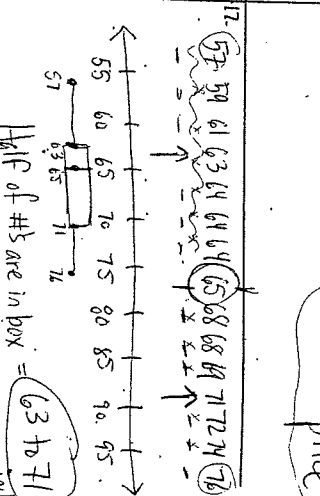 17. 57 59 61 63 64 64 64 65 68 68 69 71 72 74 76
55 60 65 70 75 80 85 90 95
57 63 65 71 76
Half of #'s are in box = 63 to 71